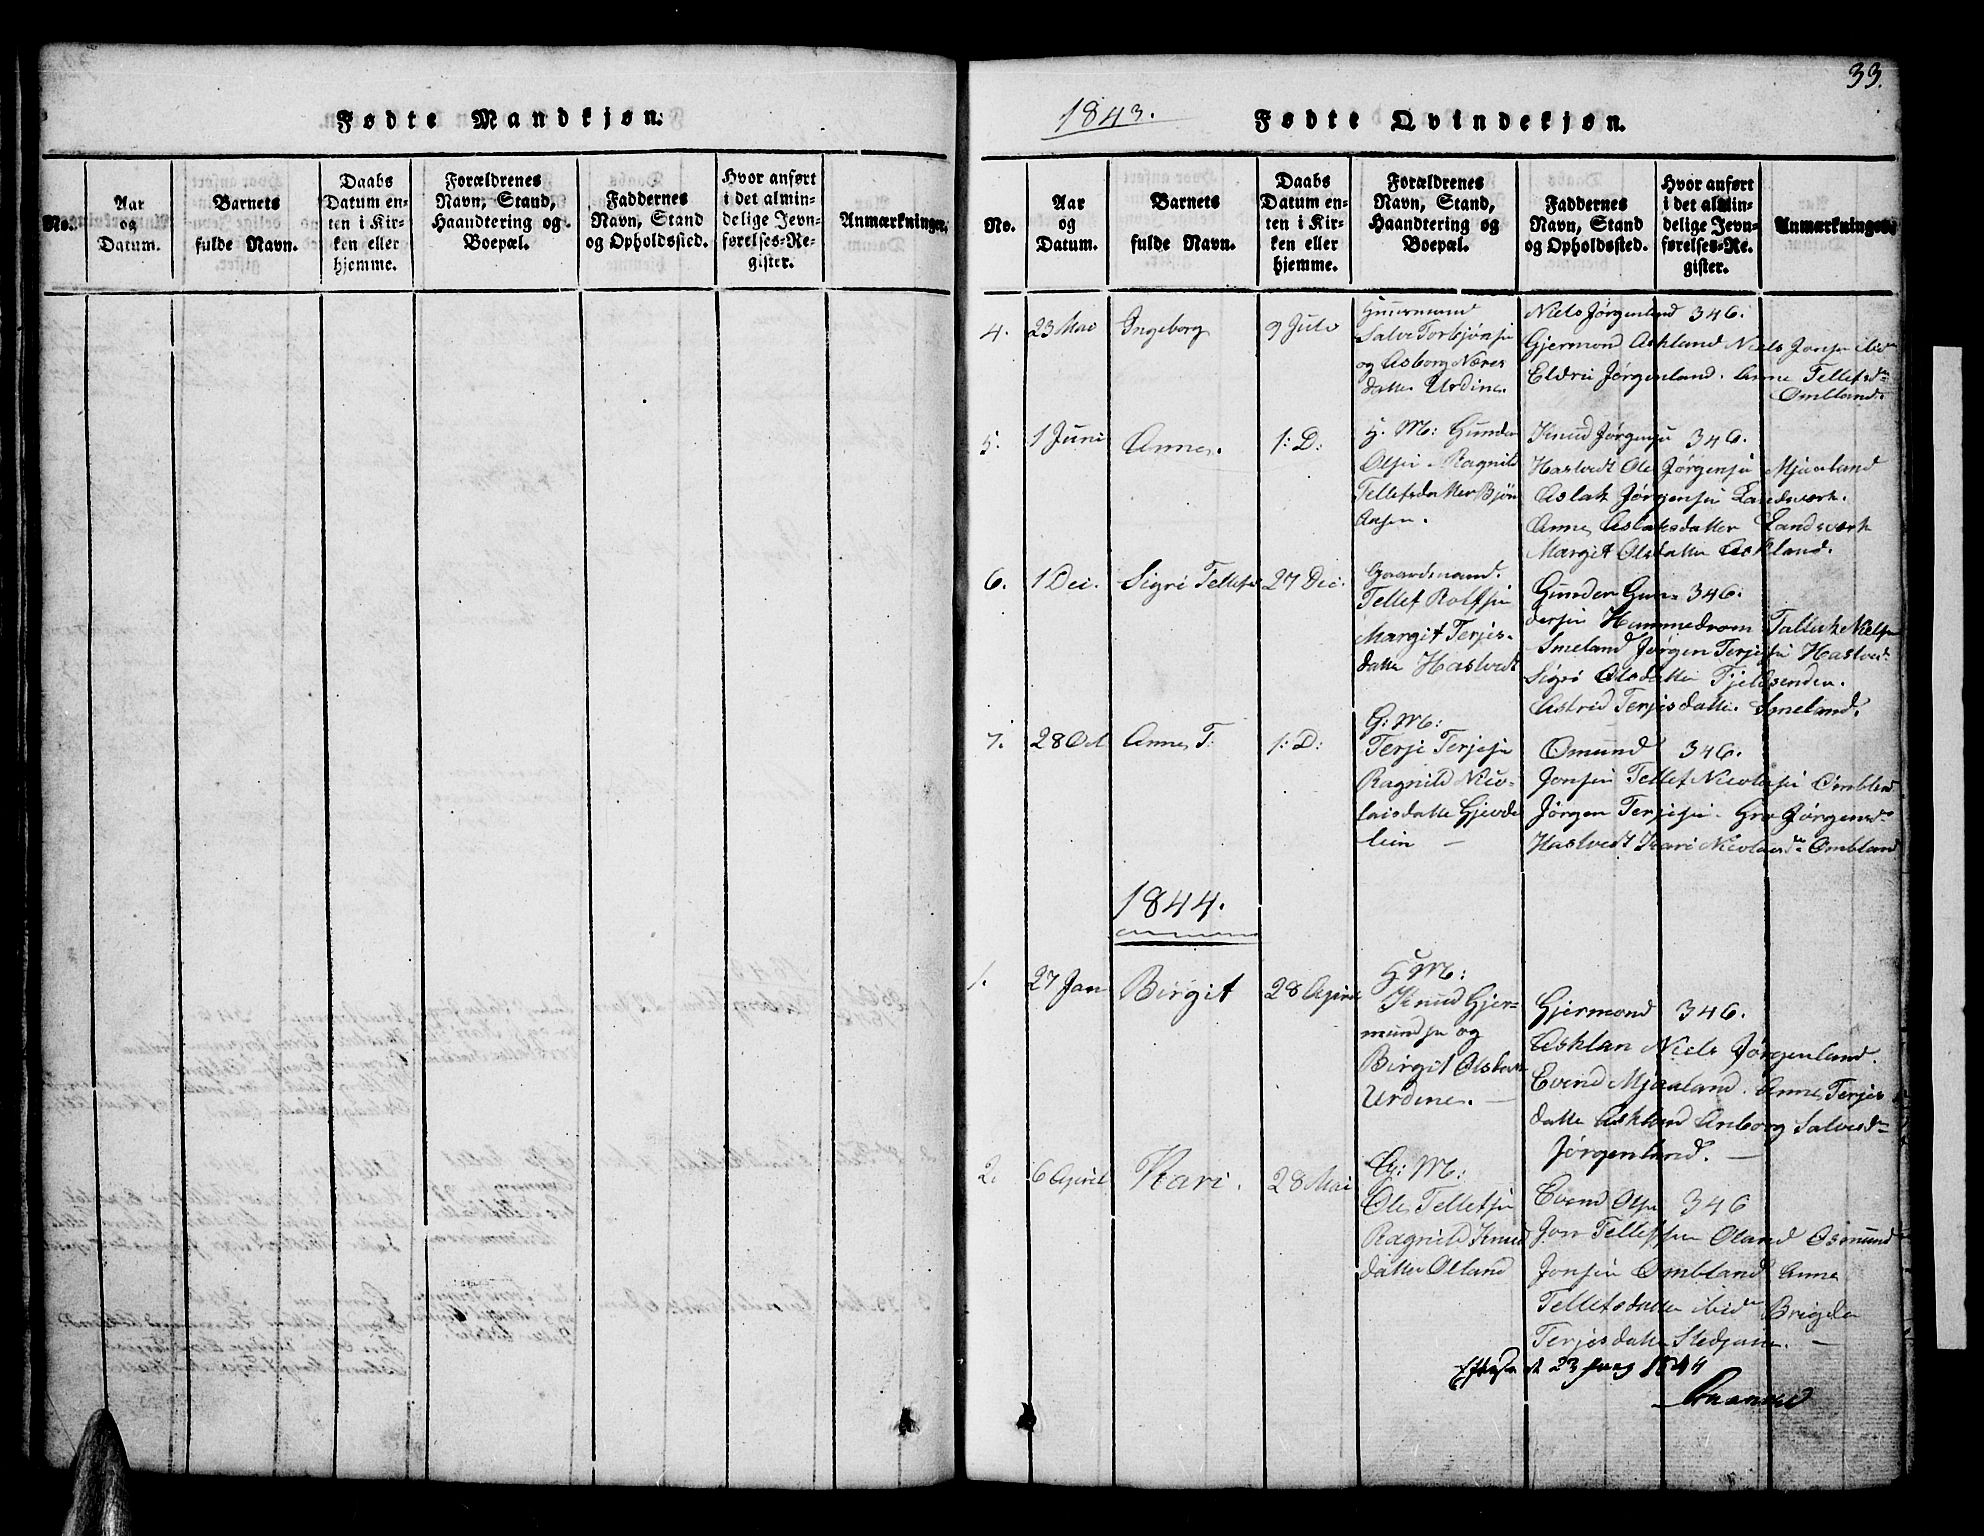 Fødte Mandkjøn.
No.
Aar
og
Datum.
Barnets
fulde Navn.
Daabs
Datum en-
ten i Kir-
ken eller
hjemme.
Forældrenes
Navn, Stand,
Haandtering og
Boepæl.
Faddernes
Navn, Stand
og Opholdssted.
Hvor anført
i det almin-
delige Jevn-
førelses-Re-
gister.
Anmærkninger.
33.
1843.
Fødte Qvindekjøn.
No.
Aar
og
Datum.
Barnets
fulde Navn.
Daabs
Datum en-
ten i Kir-
ken eller
hjemme.
Forældrenes
Navn, Stand,
Haandtering og
Boepæl.
Faddernes
Navn, Stand
og Opholdssted.
Hvor anført
i det almin-
delige Jevn-
førelses-Re-
gister.
Anmærkninger.
4.
23 Mai
Ingeborg
9 Juli
Huusmand
Salve Torbjønsen
og Asborg Neres
datter Urdine.
Niels Jørgenland 346.
Gjermond Askland Niels Jonsen ibid
Eldrie Jørgenland. Anne Tellefsd
Omland.
5.
1 Juni
Anne.
1: D:
H. M: Gunder
Olsen. Ragnild
Tellefsdatter Bjøn
Aasen.
Knud Jørgensen 346.
Hastvedt Ole Jørgensen Mjaaland
Aslak Jørgensen Landsverk.
Anne Aslaksdatter Landsværk
Margit Olsdatter Askland.
6.
1 Dei.
Sigri Tellefsd
27 Dei.
Gaardmand.
Tellef Rolfsen
Margit Terjes-
datter Hastvedt
Gunder Gun- 346.
dersen Hammedrom Tallak Nielsen
Smeland Jørgen Terjesen Hastvedt
Sigri Olsdatter Fjeldsenden.
Astrid Terjesdatter Smeland.
7.
28 Oct
Anne T:
1: D:
G: M:
Terje Terjesen
Ragnild Nico-
laisdatter Gjevde
leien —
Omund 346.
Jonsen Tellef Nicolaisen Ombland
Jørgen Terjesen. Gro Jørgensd
Hastvedt Kari Nicolaisd Ombland
1844.
1.
27 Jan
Birgit
28 April
H M:
Knud Gjer-
mundsen og
Birgit Olsdatter
Urdine. —
Gjermond 346.
Asklan Niels Jørgenland.
Evend Mjaaland. Anne Terjes
datter Askland Anborg Salvesd
Jørgenland. —
2.
6 April
Kari.
28 Mai
G: M:
Ole Tellefsen
Ragnild Knud
datter Olland
Evend Olsen 346
Jon Tellefsen Oland Osmund
Jonsen Ombland Anne
Tellefsdatter ibid Brigde
Terjesdatter Stedjane. —
23 1844